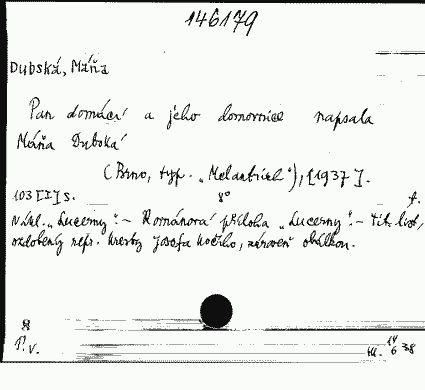 146179
Dubská, Máňa
Pan domácí a jeho domovnice napsala
Máňa Dubská
(Brno, typ. „Melantrich"), [1937].
103 [I] s. 8° f.
Nákl. „Lucerny". – Románová příloha „Lucerny". – Tit. list,
ozdobený repr. kresby Josefa Kočího, zároveň obálkou.
P. V.
14
6 38